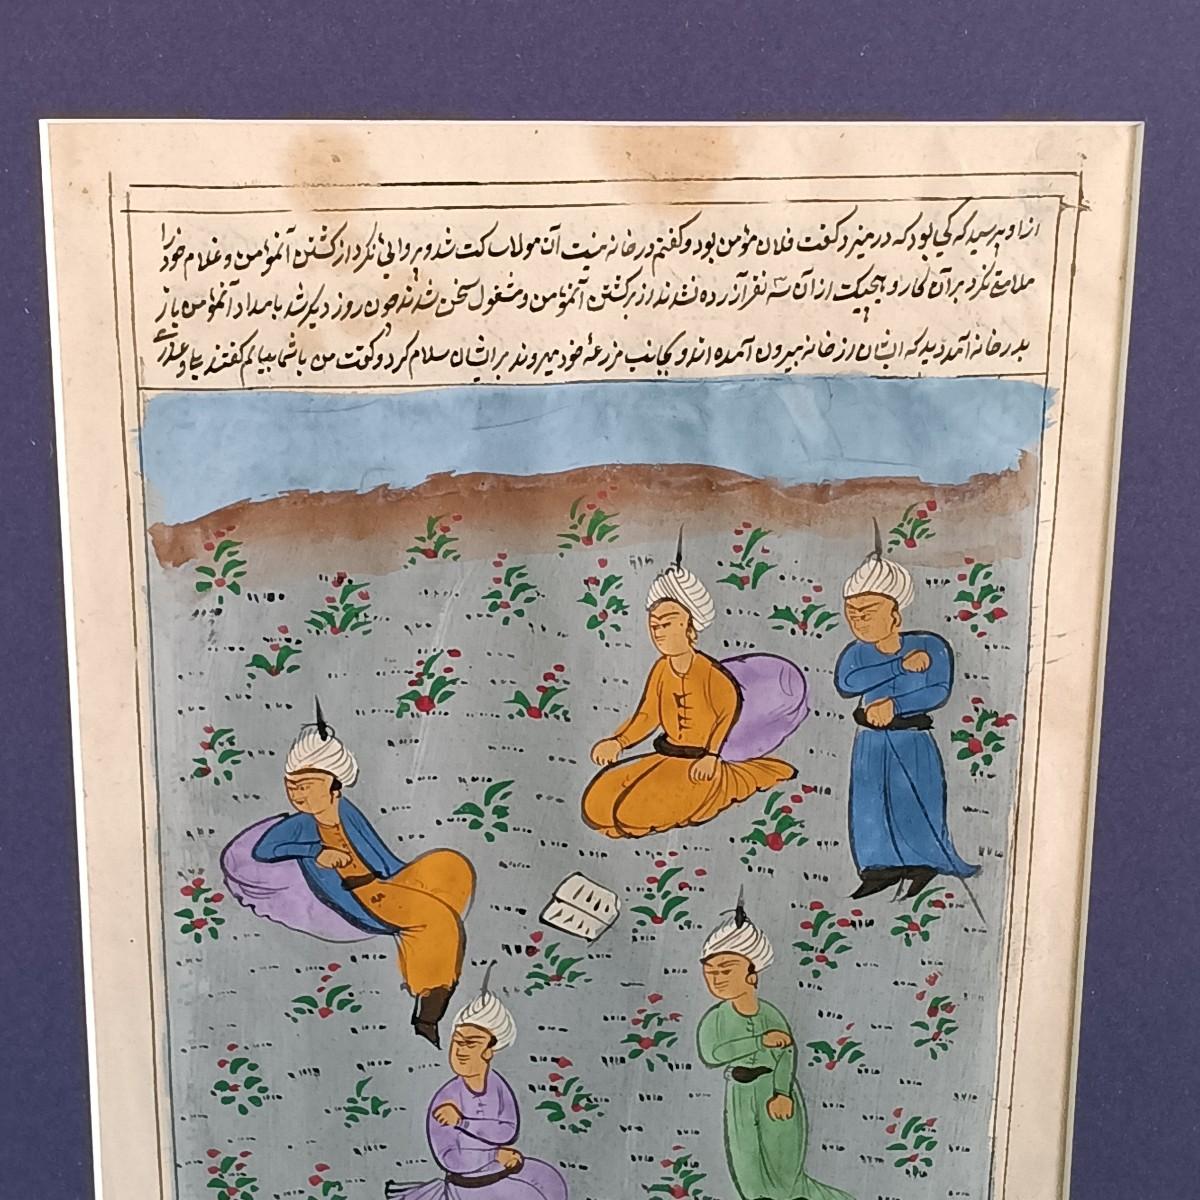 از او پرسید که کی بود که در میزد گفت فلان مؤمن بود و گفتم در خانه نیست آن مولا ساکت شد و پروائی نکرد از گشتن آنمؤمن و غلام خود را
ملامت نکرد بر آن کار و هیچیک از آن سه نفر آزرده نشدند از برگشتن آنمؤمن و مشغول سخن شدند چون روز دیگر شد بامداد آنمؤمن باز
بدر خانه آمد دید که ایشان از خانه بیرون آمده اند و بجانب مزرعهٔ خود میروند بر ایشان سلام کرد و گفت من با شما بیایم گفتند بیا و عذری